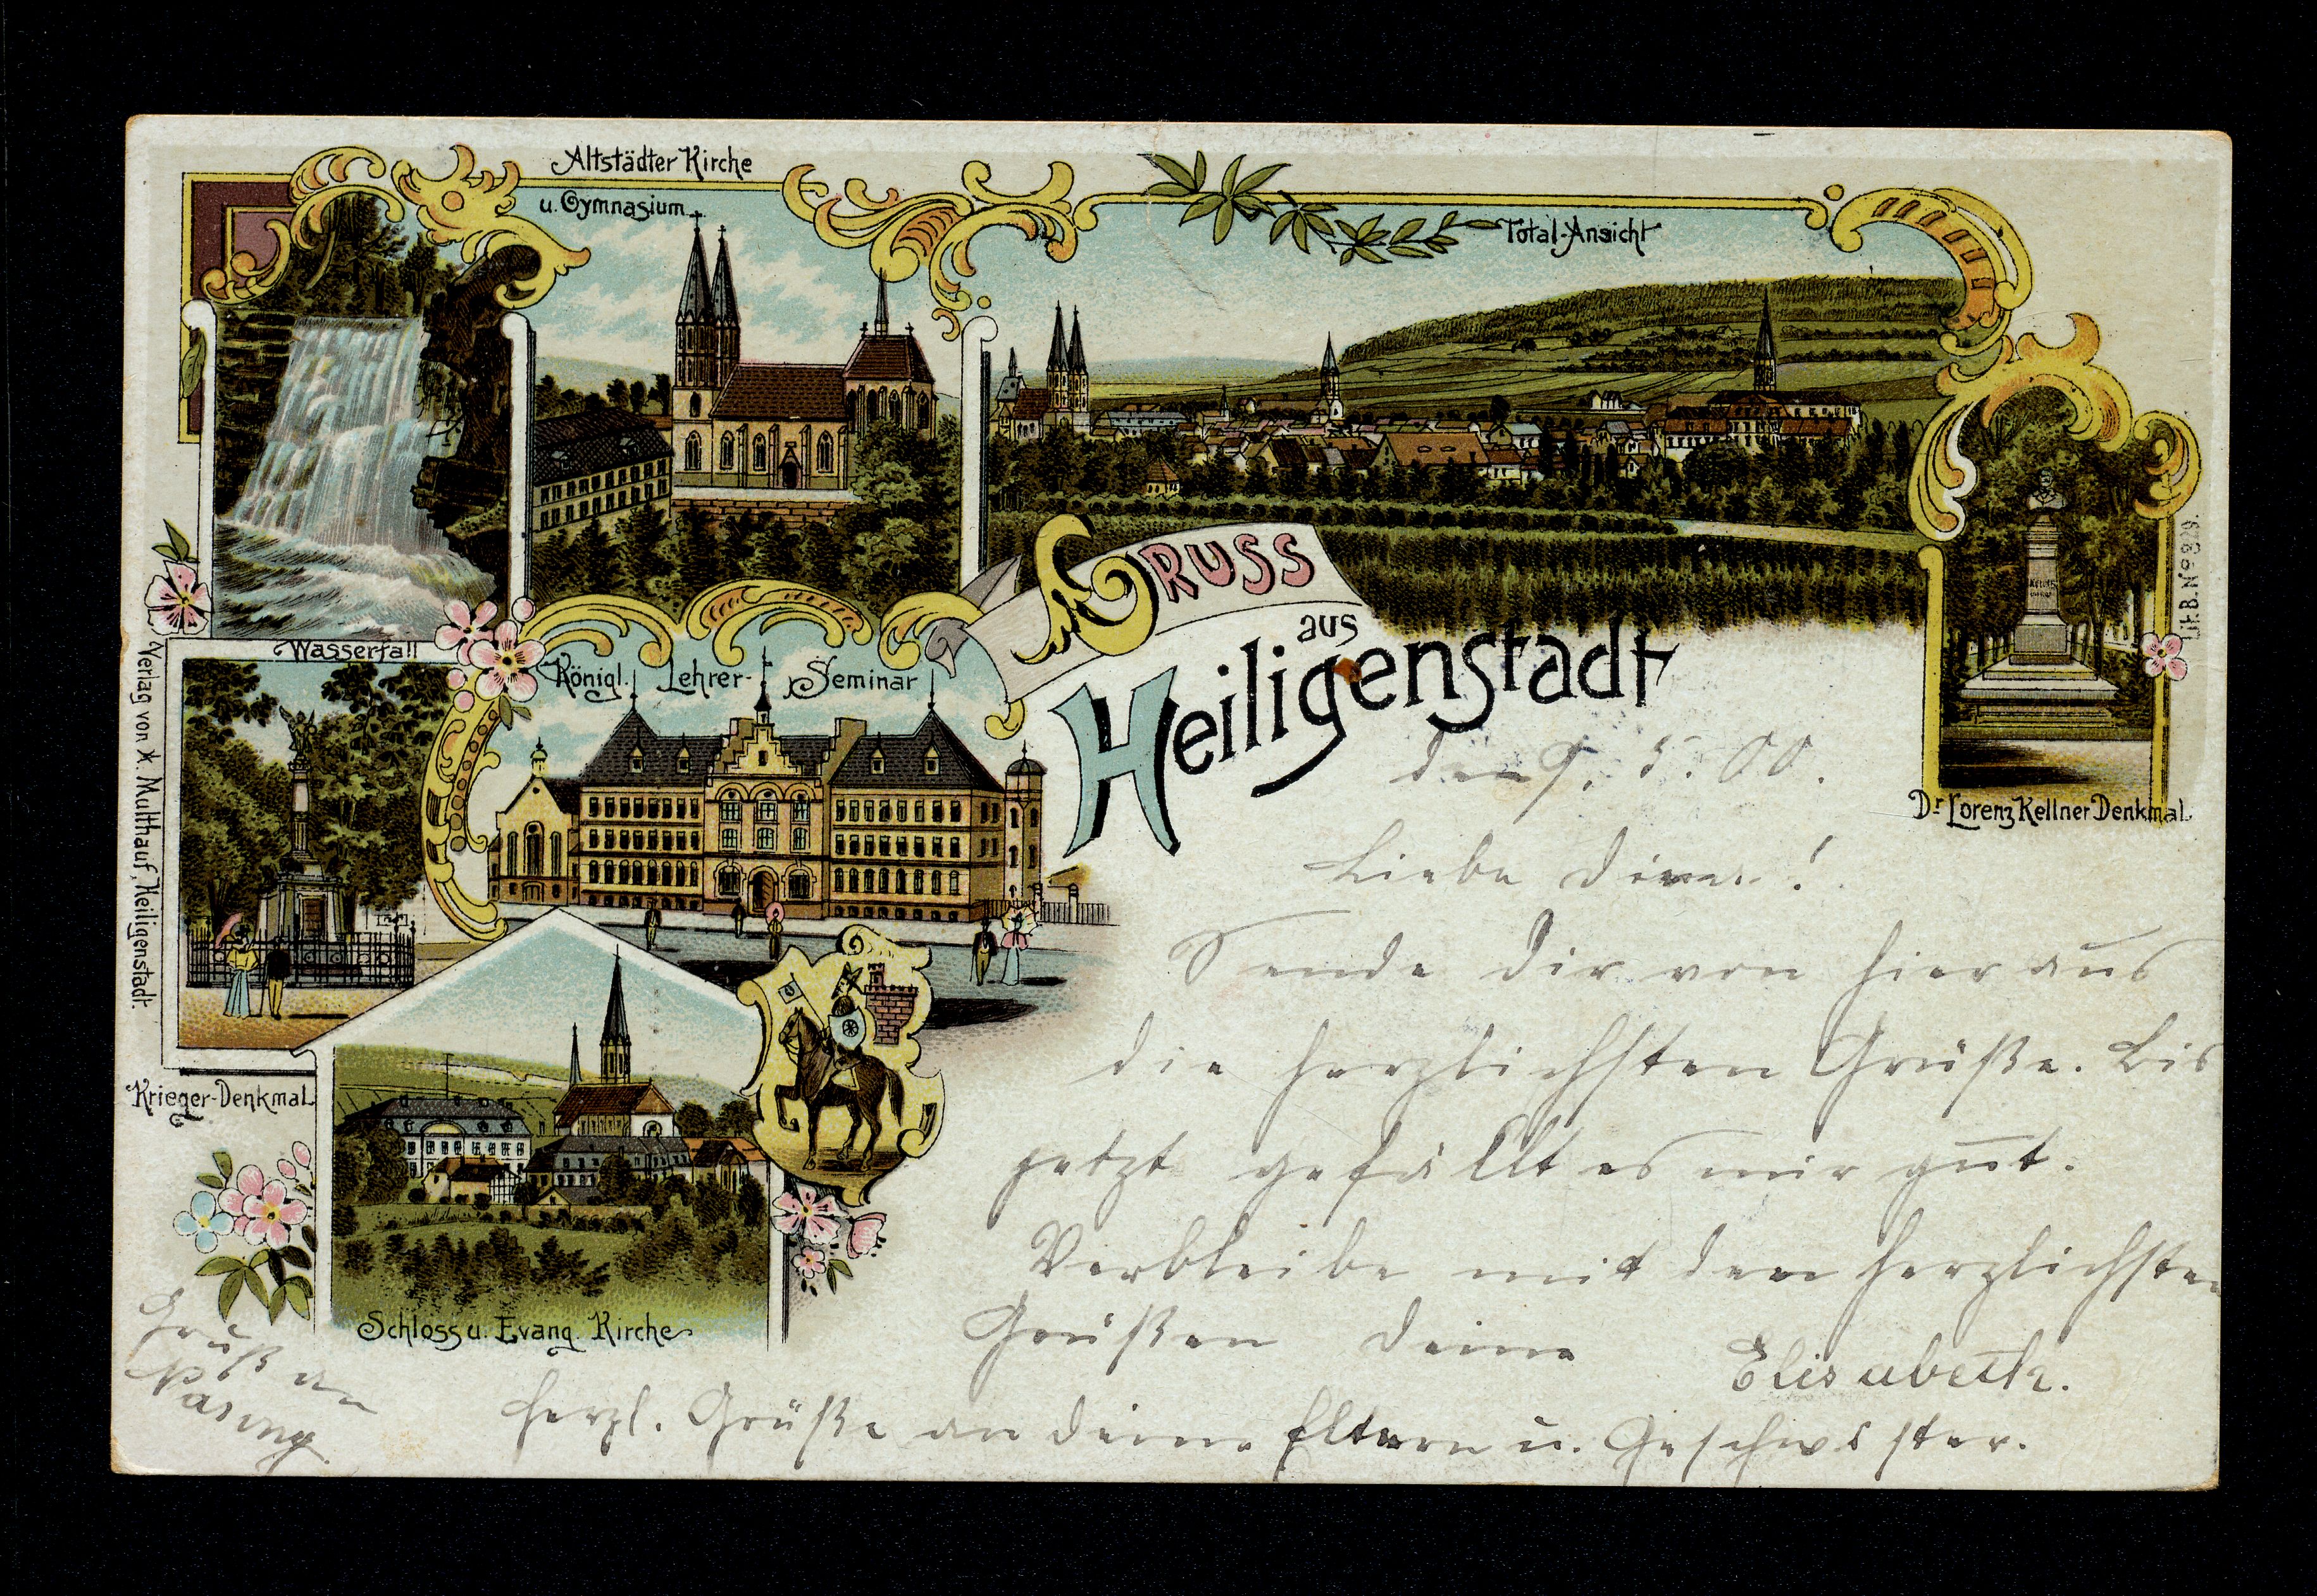 Altstädter Kirche
u. Gymnasium
Total-Ansicht
Wasserfall
Königl. Lehrer-Seminar
Gruss
aus
Heiligenstadt
Lit. B. No 829.
Dr Lorenz Kellner Denkmal
Verlag von K. Multhauf, Heiligenstadt.
Krieger-Denkmal
Schloss u. Evang. Kirche
den 9. 5. 00.
Liebe
Sende dir von hier aus
die herzlichsten Grüße. Bis
jetzt gefällt es mir gut.
Verbleibe mit den herzlichsten
Grüßen deine Elisabeth.
herzl. Grüße an deine Eltern u. Geschwister.
Gruß an